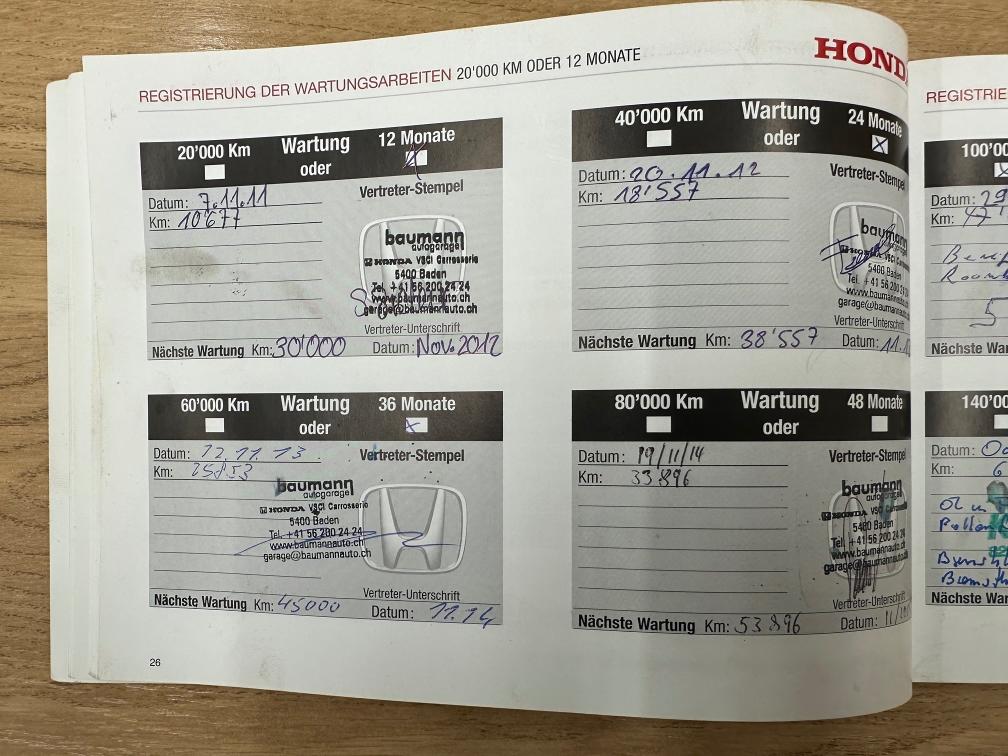 REGISTRIERUNG DER WARTUNGSARBEITEN 20'000 KM ODER 12 MONATE
HONDA
20'000 Km Wartung oder 12 Monate
Datum: 7.11.11
Km: 10'677
Vertreter-Stempel
baumann
autogarage
HONDA VSCI Carrosserie
5400 Baden
Tel. +41 56 200 24 24
www.baumannauto.ch
garage@baumannauto.ch
Vertreter-Unterschrift
Nächste Wartung Km: 30'000 Datum: Nov. 2012
40'000 Km Wartung oder 24 Monate
Datum: 20.11.12
Km: 18'557
Vertreter-Stempel
baumann
HONDA
5400 Baden
Tel. +41 56 200 24
www.baumannauto.
garage@baumannau
Vertreter-Unterschrif
Nächste Wartung Km: 38'557 Datum: 11.
60'000 Km Wartung oder 36 Monate
Datum: 12.11.13
Km: 25853
Vertreter-Stempel
baumann
autogarage
HONDA VSCI Carrosserie
5400 Baden
Tel. +41 56 200 24 24
www.baumannauto.ch
garage@baumannauto.ch
Vertreter-Unterschrift
Nächste Wartung Km: 45000 Datum: 11.14
80'000 Km Wartung oder 48 Monate
Datum: 19/11/14
Km: 33896
Vertreter-Stempel
baumann
autogarage
HONDA VSCI Carrosserie
5400 Baden
Tel. +41 56 200 24 24
www.baumannauto.ch
garage@baumannauto.ch
Vertreter-Unterschrift
Nächste Wartung Km: 53896 Datum: 11/
26
REGISTRIE
100'00
Datum: 29
Km:
5
Nächste War
140'00
Datum:
Km: 6
Nächste War